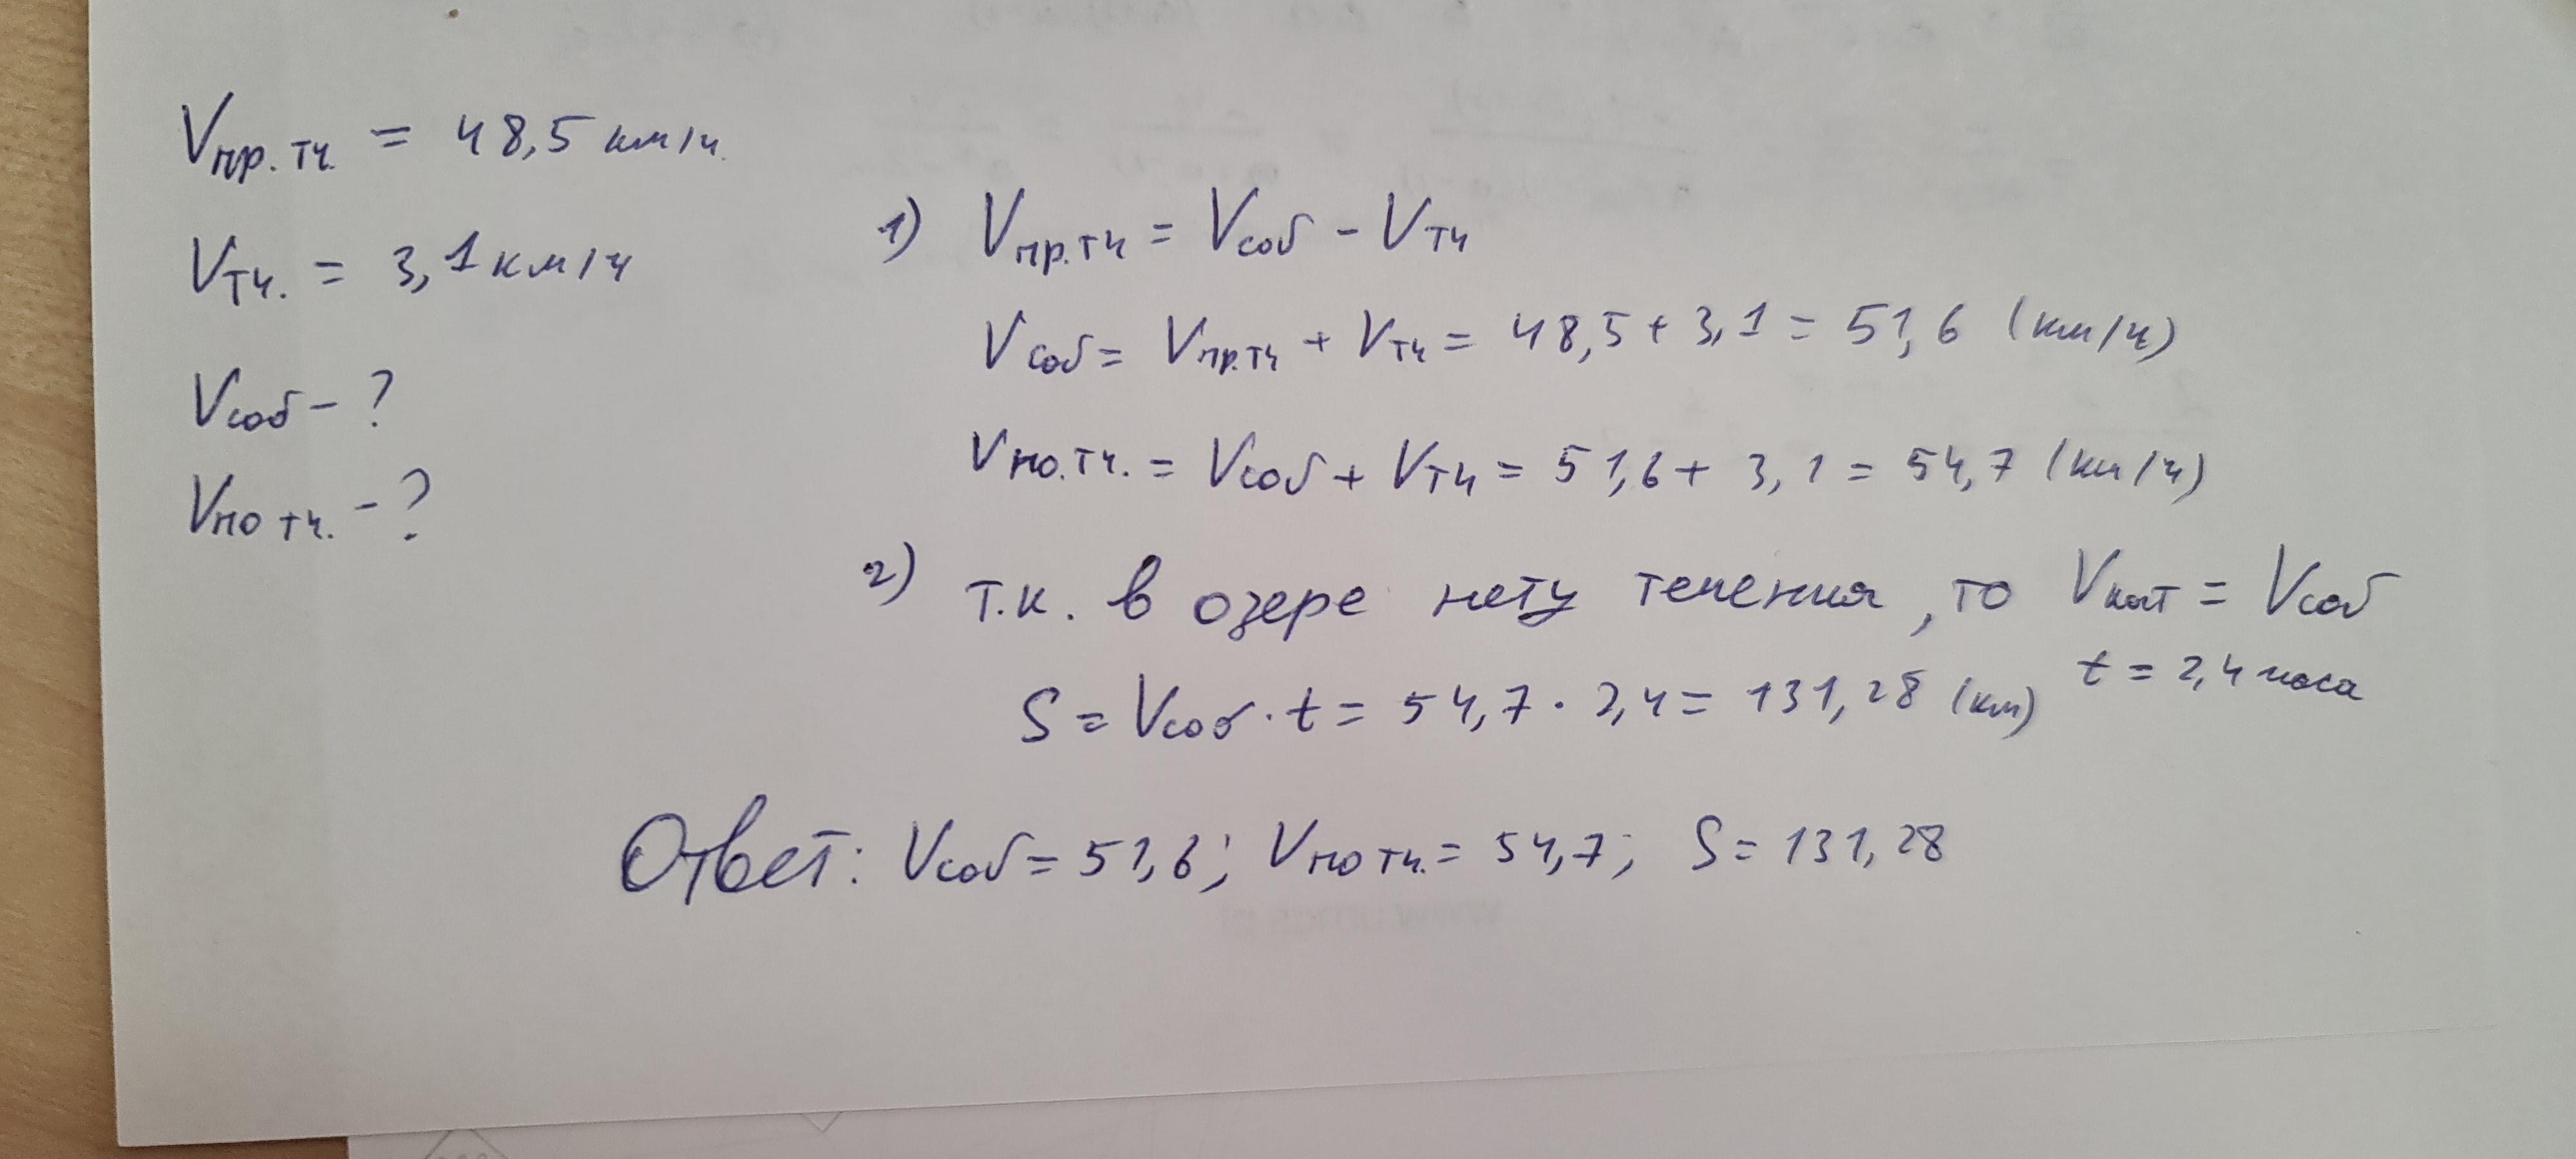 Vпр.тч. = 48,5 км/ч.
Vтч. = 3,1 км/ч
Vсоб - ?
Vпо тч. - ?
1) Vпр.тч = Vсоб - Vтч
Vсоб = Vпр.тч + Vтч = 48,5 + 3,1 = 51,6 (км/ч)
Vпо.тч. = Vсоб + Vтч = 51,6 + 3,1 = 54,7 (км/ч)
2) т.к. в озере нету течения, то Vкат = Vсоб
t = 2,4 часа
S = Vсоб · t = 54,7 · 2,4 = 131,28 (км)
Ответ: Vсоб = 51,6; Vпо тч. = 54,7; S = 131,28